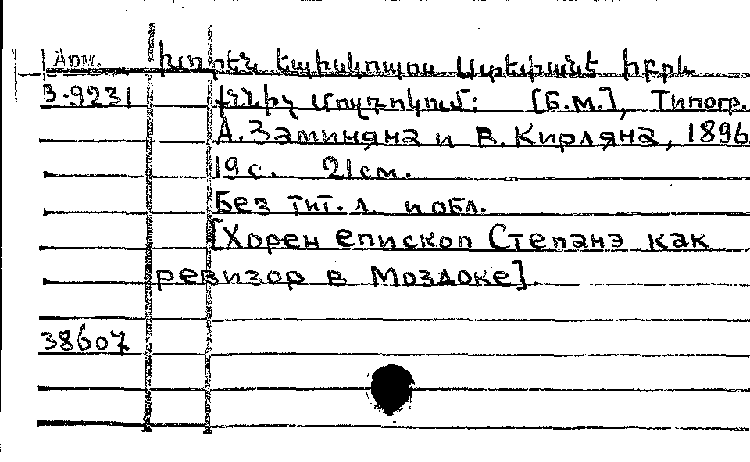 Арм. Խորէն եպիսկոպոս Ստեփանէ իբրև
3-9231 քննիչ Մոզդոկում: [Б.м.], Типогр.
А. Заминяна и В. Кирляна, 1896
19 с. 21 см.
Без тит. л. и обл.
[Хорен епископ Степанэ как
ревизор в Моздоке].
38607